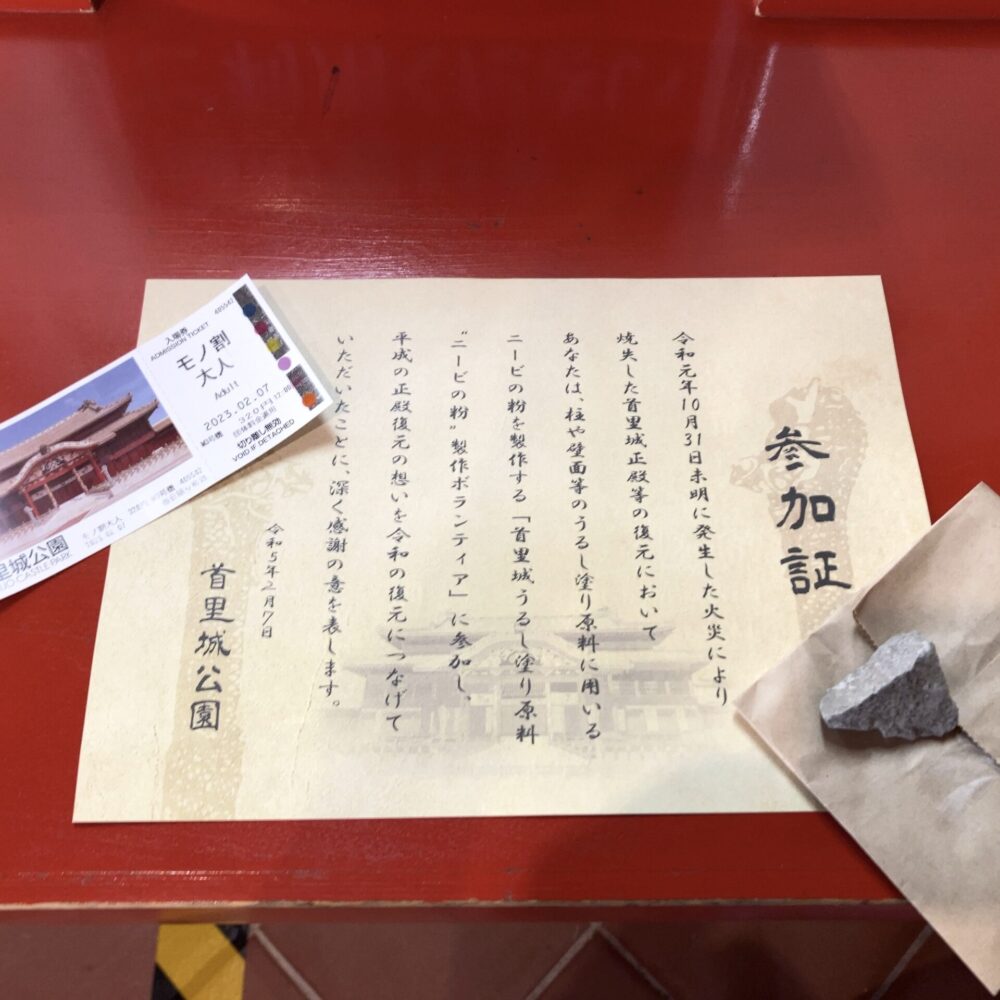 参加証
令和元年10月31日未明に発生した火災により
焼失した首里城正殿等の復元において
あなたは、柱や壁面等のうるし塗り原料に用いる
ニービの粉を製作する「首里城うるし塗り原料
“ニービの粉”製作ボランティア」に参加し、
平成の正殿復元の想いを令和の復元につなげて
いただいたことに、深く感謝の意を表します。
令和5年2月7日
首里城公園
入場券
ADMISSION TICKET
モノ割
大人
Adult
2023.02.07
320円
団体料金適用
切り離し無効
VOID IF DETACHED
485542
モノ割大人
里城公園
CASTLE PARK